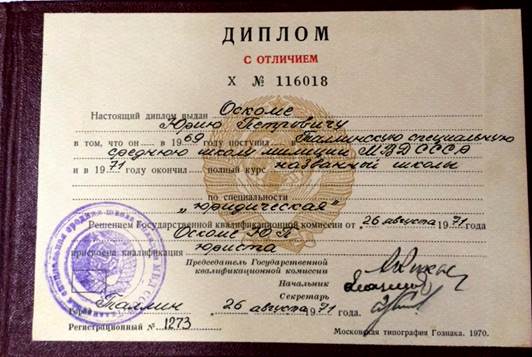 ДИПЛОМ
С ОТЛИЧИЕМ
X № 116018
Настоящий диплом выдан Оскоме
Юрию Петровичу
в том, что он в 1969 году поступил в Таллинскую специальную
среднюю школу милиции МВД СССР
и в 1971 году окончил полный курс названной школы
по специальности
„юридическая“
Решением Государственной квалификационной комиссии от „26 августа 1971 года
Оскоме Ю.П.
присвоена квалификация юриста
Председатель Государственной
квалификационной комиссии
Начальник
Секретарь
Таллин, 26 августа 1971 г.
Регистрационный № 1273
Московская типография Гознака. 1970.